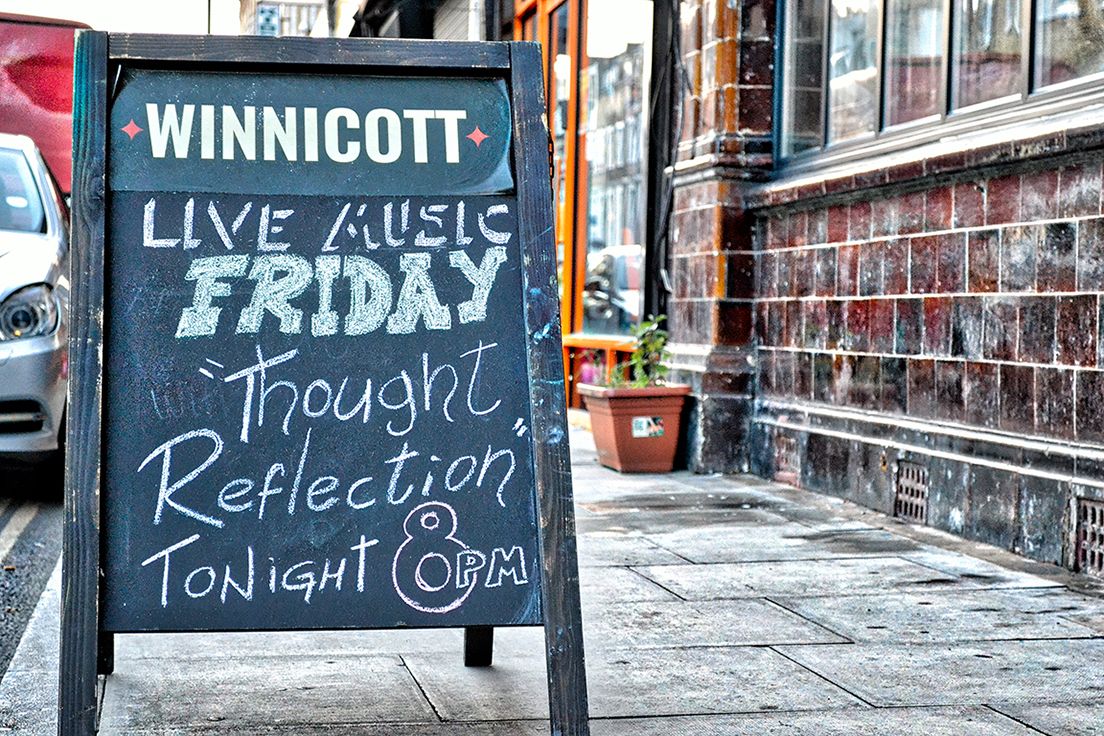 WINNICOTT
LIVE MUSIC
FRIDAY
"Thought
Reflection"
TONIGHT 8PM